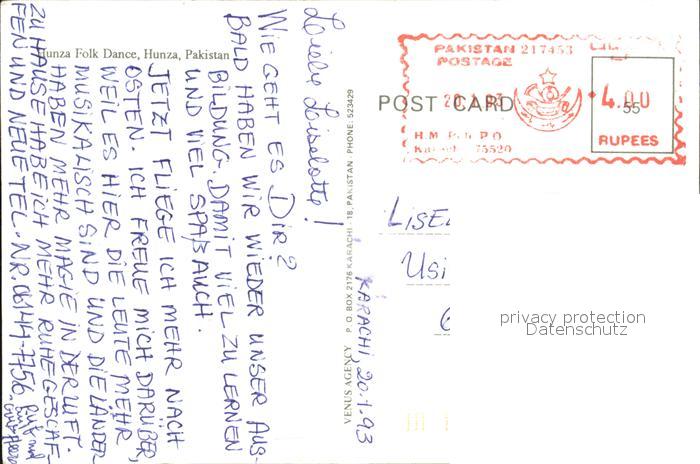 Hunza Folk Dance, Hunza, Pakistan
Liebe Liselotte!
WIE GEHT ES DIR?
BALD HABEN WIR WIEDER UNSER AUS-
BILDUNG. DAMIT VIEL ZU LERNEN
UND VIEL SPAß AUCH.
JETZT FLIEGE ICH MEHR NACH
OSTEN. ICH FREUE MICH DARÜBER,
WEIL ES HIER DIE LEUTE MEHR
MUSIKALISCH SIND UND DIE LÄNDER
HABEN MEHR MAGIE IN DER LUFT.
ZU HAUSE HABE ICH MEHR RUHE GESCAF-
FEN UND NEUE TEL-NR. 06144-7756.
VENUS AGENCY P.O BOX 2176 KARACHI - 18, PAKISTAN - PHONE: 523429
KARACHI 20.1.93
POST CARD
PAKISTAN 217453
POSTAGE
20.1.93
H.M. P.O
75520
4.00
55
RUPEES
LISEL
USI
privacy protection
Datenschutz